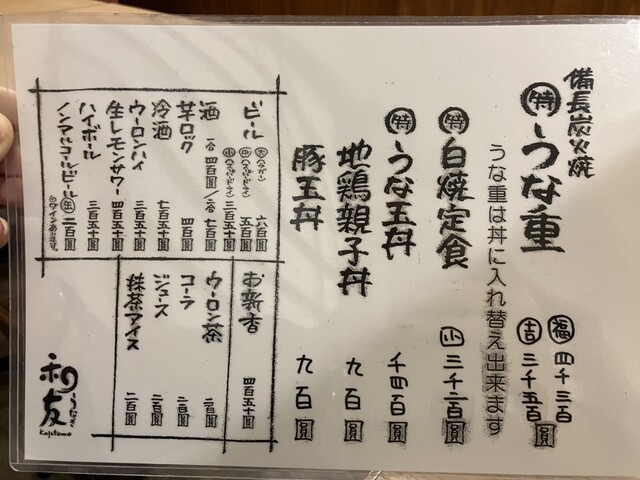 備長炭火焼
特うな重
福 四千三百
吉 三千五百圓
うな重は丼に入れ替え出来ます
特白焼定食 小 三千二百圓
特うな玉丼 千四百圓
地鶏親子丼 九百圓
豚玉丼 九百圓
ビール
六百圓
五百圓
三百五十圓
酒 一合 四百圓/二合 七百圓
芋ロック 四百圓
冷酒 七百五十圓
ウーロンハイ 三百五十圓
生レモンサワー 四百五十圓
ハイボール 三百五十圓
ノンアルコールビール 二百圓
ワインあります。
お新香 四百五十圓
ウーロン茶 二百圓
コーラ 二百圓
ジュース 二百圓
抹茶アイス 二百圓
うなぎ
和友
Kazutomo